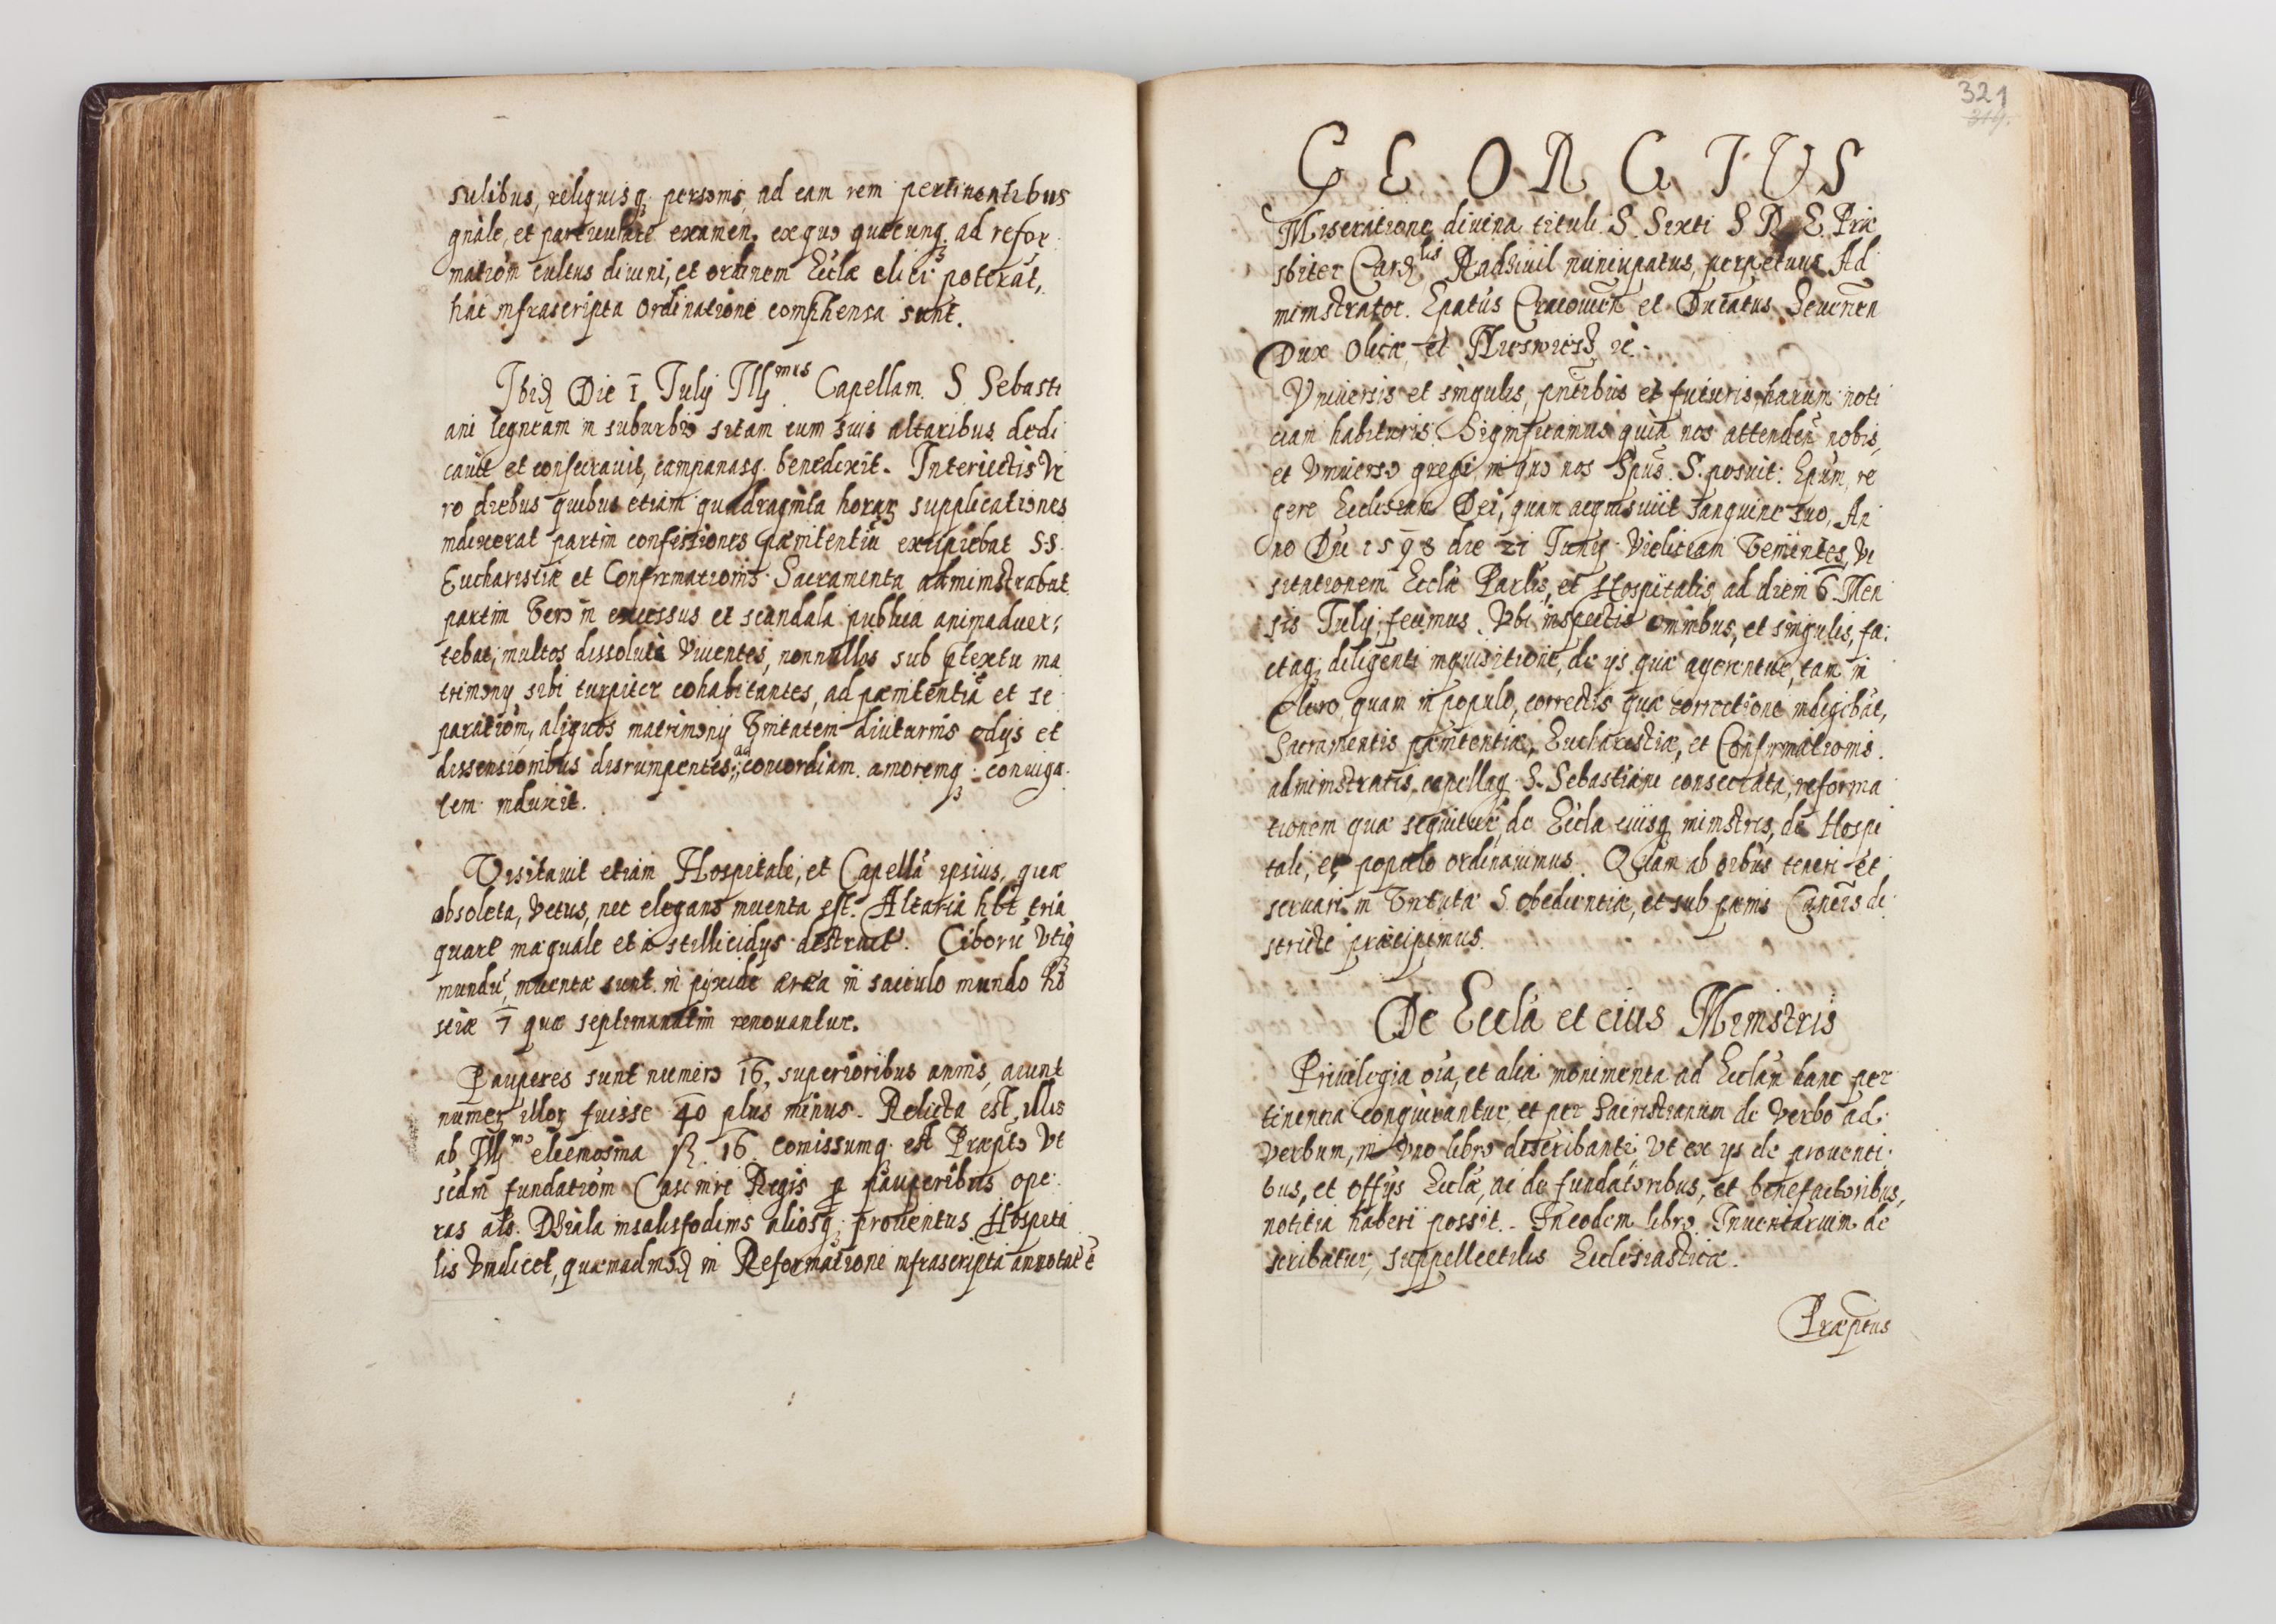 sulibus, reliquisq; personis, ad eam rem pertinentibus
gnāle, et particulare examen, ex quo quęcunq; ad refor
matiōm cultus diuini, et ordinem Eccłæ elici poterāt,
hac infrascripta ordinatione comp̄hensa sunt.
Ibid Die 1 Iulij Ill^mus Capellam S. Sebasti
ani ligneam in suburbio sitam cum suis altaribus dedi
cauit et consecrauit, campanasq; benedixit. Interiectis Ve
ro diebus quibus etiam quadraginta horar supplicationes
indixerat partim confessiones pænitentiū excipiebat SS.
Eucharistiæ et Confirmationis Sacramenta administrabat
partim Vero in excessus et scandala publica animaduer;
tebat; multos dissolute Viuentes, nonnullos sub p̄textu ma
trimonij sibi turpiter cohabitantes, ad pænitentiā et se
paratiōm, aliquos matrimonij Vnitatem diuturnis odijs et
dissensionibus disrumpentes, ad concordiam amoremq; coniuga
lem induxit.
Visitauit etiam Hospitale, et Capellā ipsius, quæ
obsoleta, Vetus, nec elegans inuenta est. Altaria hb̄t tria
quart inæquale et a stillicidijs destruct. Ciboriū Vtiq
mundū, inuentæ sunt in pyxide ærea in sacculo mundo ho
stiæ 7 quæ septimanatim renouantur.
Pauperes sunt numero 16, superioribus annis, aiunt
numer illor fuisse 40 plus minus. Relicta est illis
ab Ill^mo eleemosina 16. comissumq; est Præpto Vt
scdm fundatiōm Casimiri Regis p pauperibus ope
ras als. Dziala in salisfodinis aliosq; prouentus Hospita
lis Vindicet, quemadmod in Reformatione infrascripta annotat ē
321
319.
GEORGIUS
Miseratione diuina tituli S. Sixti S R E. Præ
sbiter Card^lis Radziuil nuncupatus, perpetuus Ad
ministrator Epatus Cracouien et Ducatus Seuerien
Dux Olicæ, et Nieswiesz etc.
Vniuersis et singulis, pntibus et futuris, harum noti
ciam habituris. Significamus quia nos attenden nobis,
et Vniuerso gregi, in quo nos Spūs. S. posuit Epum, re
gere Ecclesiam Dei, quam acquisiuit sanguine suo, An
no Dni 1598 die 21 Iunij Vieliciam Venientes, Vi
sitationem Eccłæ Parlis, et Hospitalis, ad diem 6 Men
sis Iulij, fecimus. Vbi inspectis omnibus, et singulis, fa
ctaq; diligenti inquisitione, de ijs quæ agerentur, tam in
Clero, quam in populo, correctis quæ correctione indigebāt,
Sacramentis pænitentiæ, Eucharistiæ, et Confirmationis
administratis, capellaq; S. Sebastiani consecrata, reforma
tionem quæ sequitur, de Eccła eiusq; ministris, de Hospi
tali, et populo ordinauimus. Quam ab oibus teneri et
seruari in Virtute S. obedientiæ, et sub pænis Canecis di
stricte præcipimus.
De Eccła et eius Ministris
Priuilegia oīa, et alia monimenta ad Eccłam hanc per
tinentia conquirantur, et per Sacristianum de Verbo ad
Verbum, in Vno libro describantr Vt ex ijs de prouenti
bus, et offijs Eccłæ, ac de fundatoribus, et benefactoribus,
notitia haberi possit. In eodem libro Inuentarium de
scribatur, suppellectilis Ecclesiasticæ.
Præptus